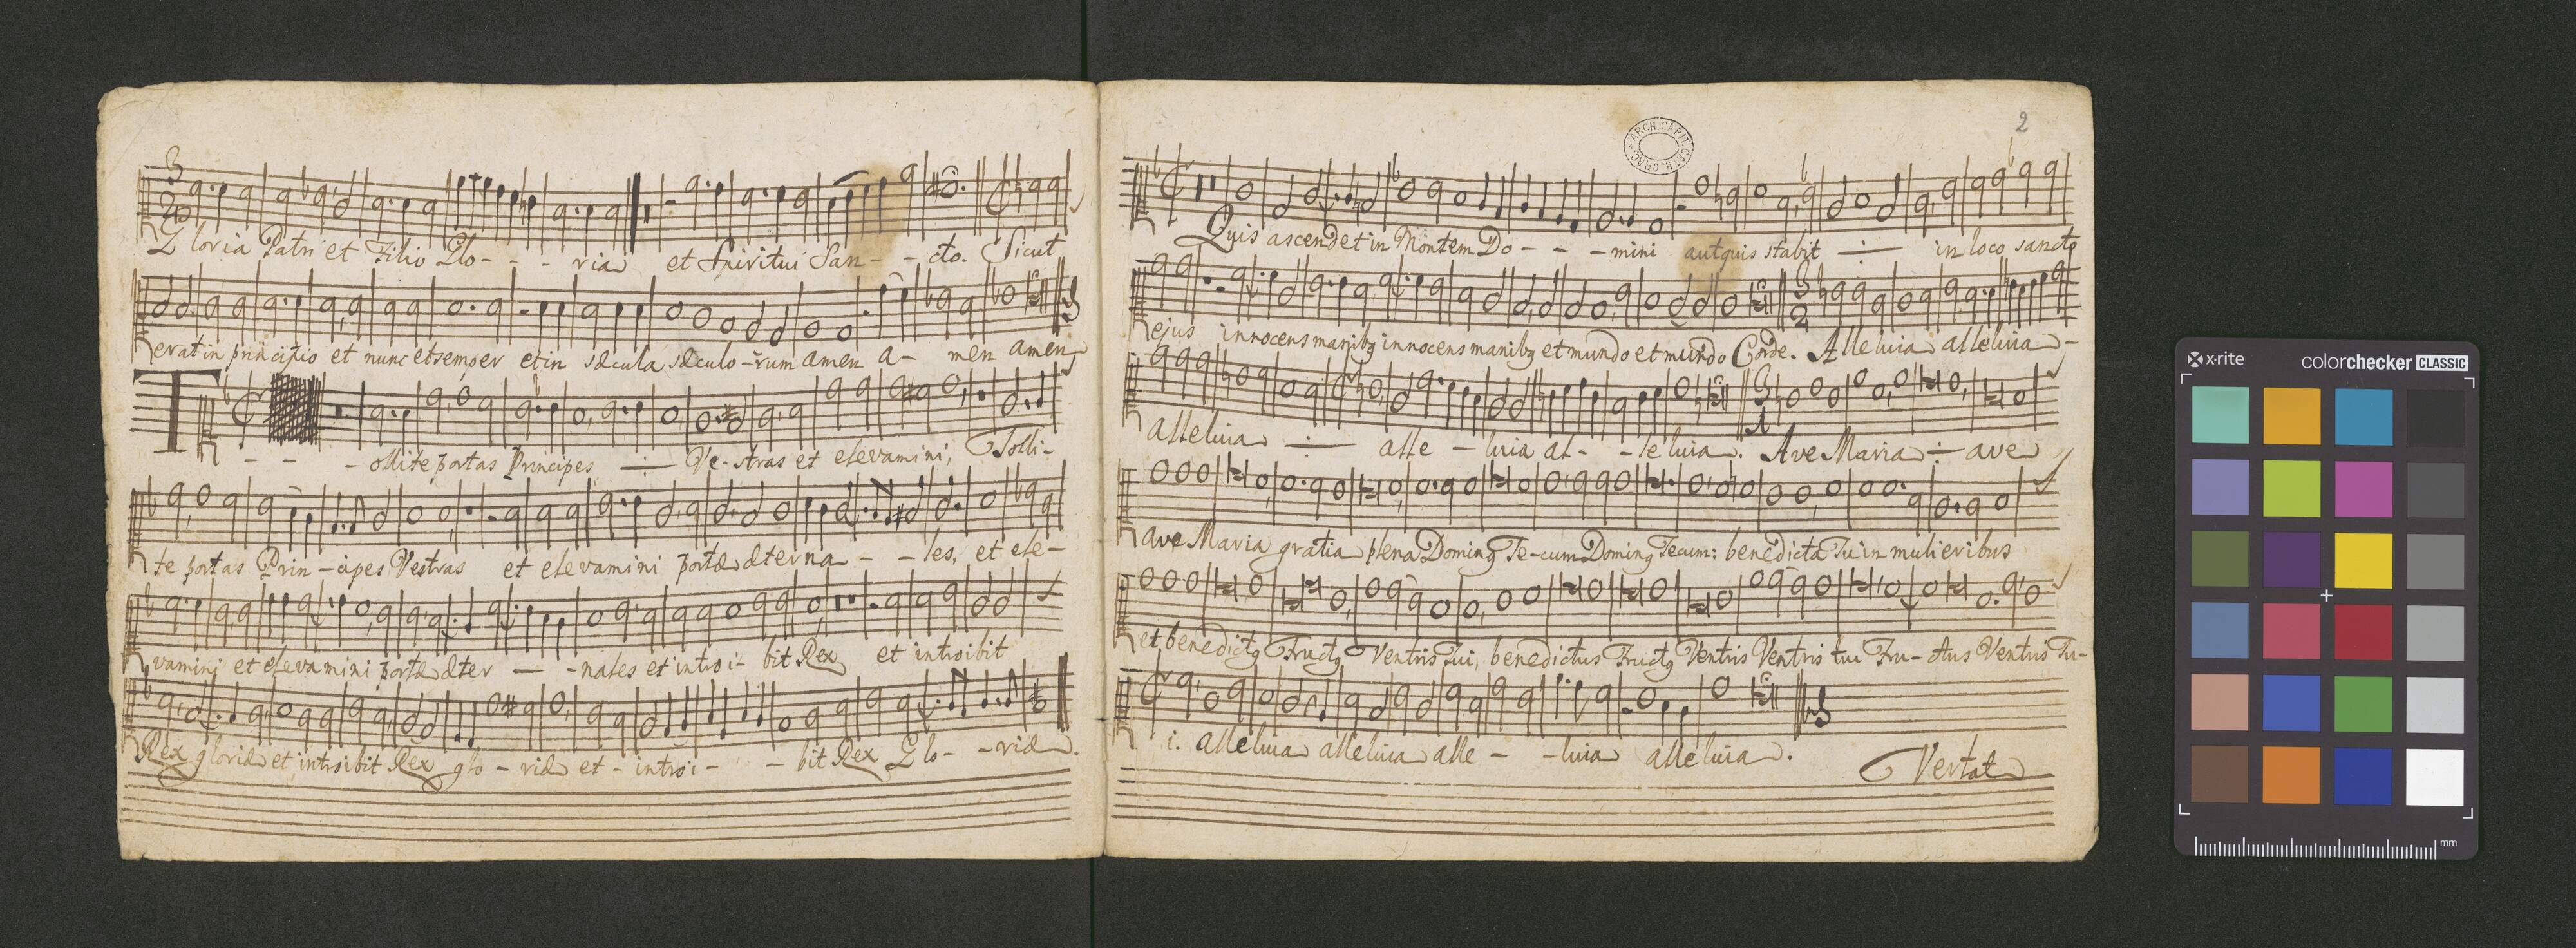 Gloria Patri et Filio Glo - - - ria et Spiritui San - - cto. Sicut
erat in principio et nunc et semper et in sæcula sæculo - rum amen a - men amen
T
- - - ollite portas Principes ÷ Ve - stras et elevamini, Tolli -
te portas Prin - cipes Vestras et elevamini portæ æterna - - les, et ele -
vamini et elevamini portæ æter - - nales et introi - bit Rex et introibit
Rex gloriæ et introibit Rex glo - riæ et - introi - - bit Rex Glo - - riæ.
2
ARCH. CAPIT. CATH. CRAC.
Quis ascendet in Montem Do - - - mini aut quis stabit ÷ in loco sancto
ejus innocens manibꝯ innocens manibꝯ et mundo et mundo Corde. Alleluia alleluia -
alleluia ÷ alle - luia al - - leluia. Ave Maria ÷ ave
ave Maria gratia plena Dominꝯ Te - cum Dominꝯ Tecum: benedicta Tu in mulieribus
et benedictꝯ Fructꝯ Ventris Tui, benedictus Fructꝯ Ventris Ventris tui Fru - ctus Ventris Tu -
i. alleluia alleluia alle - - luia alleluia.
Vertat
x·rite colorchecker CLASSIC
mm